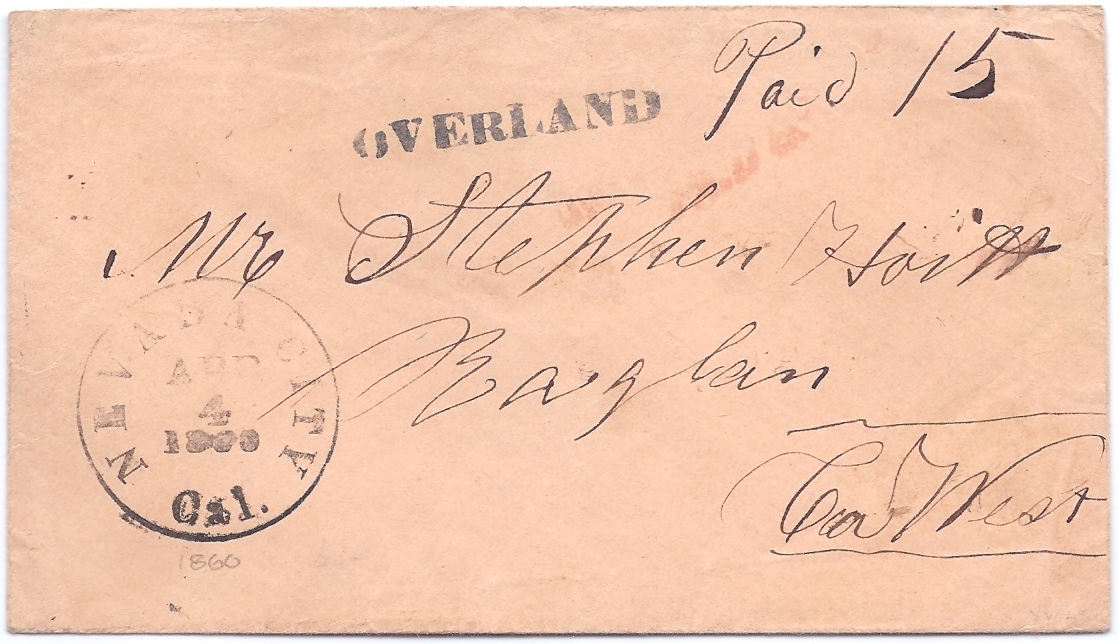 Paid 15
OVERLAND
Mr Stephen Hoitt
Raglan
Ca West
NEVADA CITY
APR
4
1860
Cal.
1860